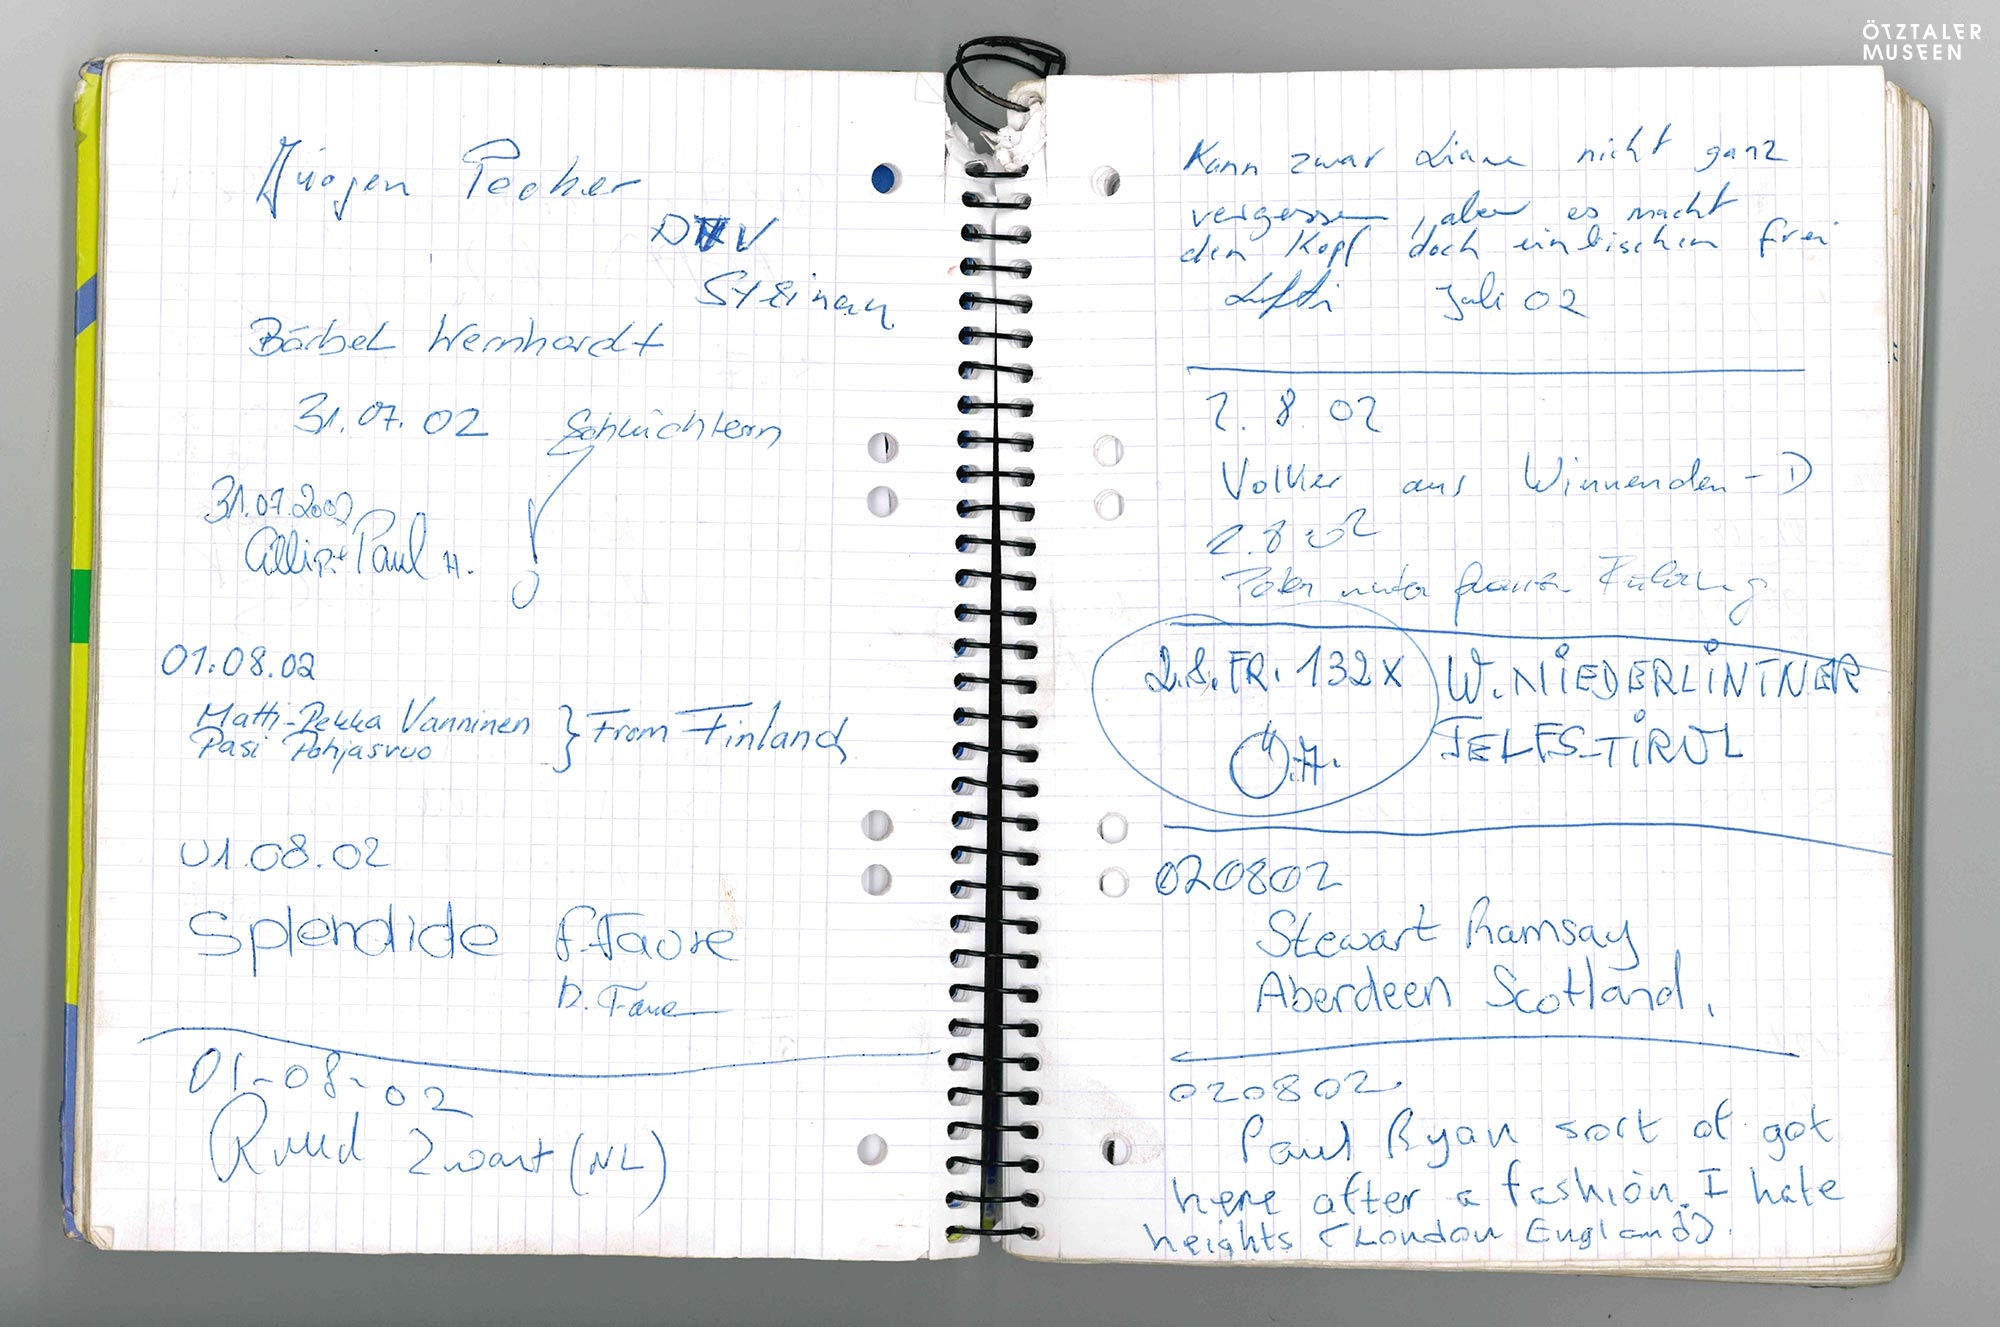 ÖTZTALER
MUSEEN
Jürgen
Steinau
Bärbel Wernhardt
31.07.02 Schlüchtern
31.07.2002
Paul H.
01.08.02
Matti-Pekka Vanninen
Pasi Pohjasvuo
} From Finland
01.08.02
Splendide F. Faure
D. Faure
01-08-02
Ruud Zwart (NL)
Kann zwar Liane nicht ganz
vergessen, aber es macht
den Kopf doch einbischen frei
Juli 02
2.8.02
Volker aus Winnenden-D
2.8.02
Peter unter
2.8. FR. 132X
Ö.A.
W. NIEDERLINTNER
TELFS-TIROL
020802
Stewart Ramsay
Aberdeen Scotland.
020802
Paul Ryan sort of got
here after a fashion. I hate
heights (London England).